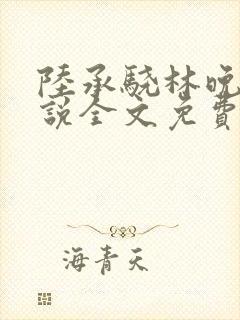 陸承驍林晚
說全文免費
海青天